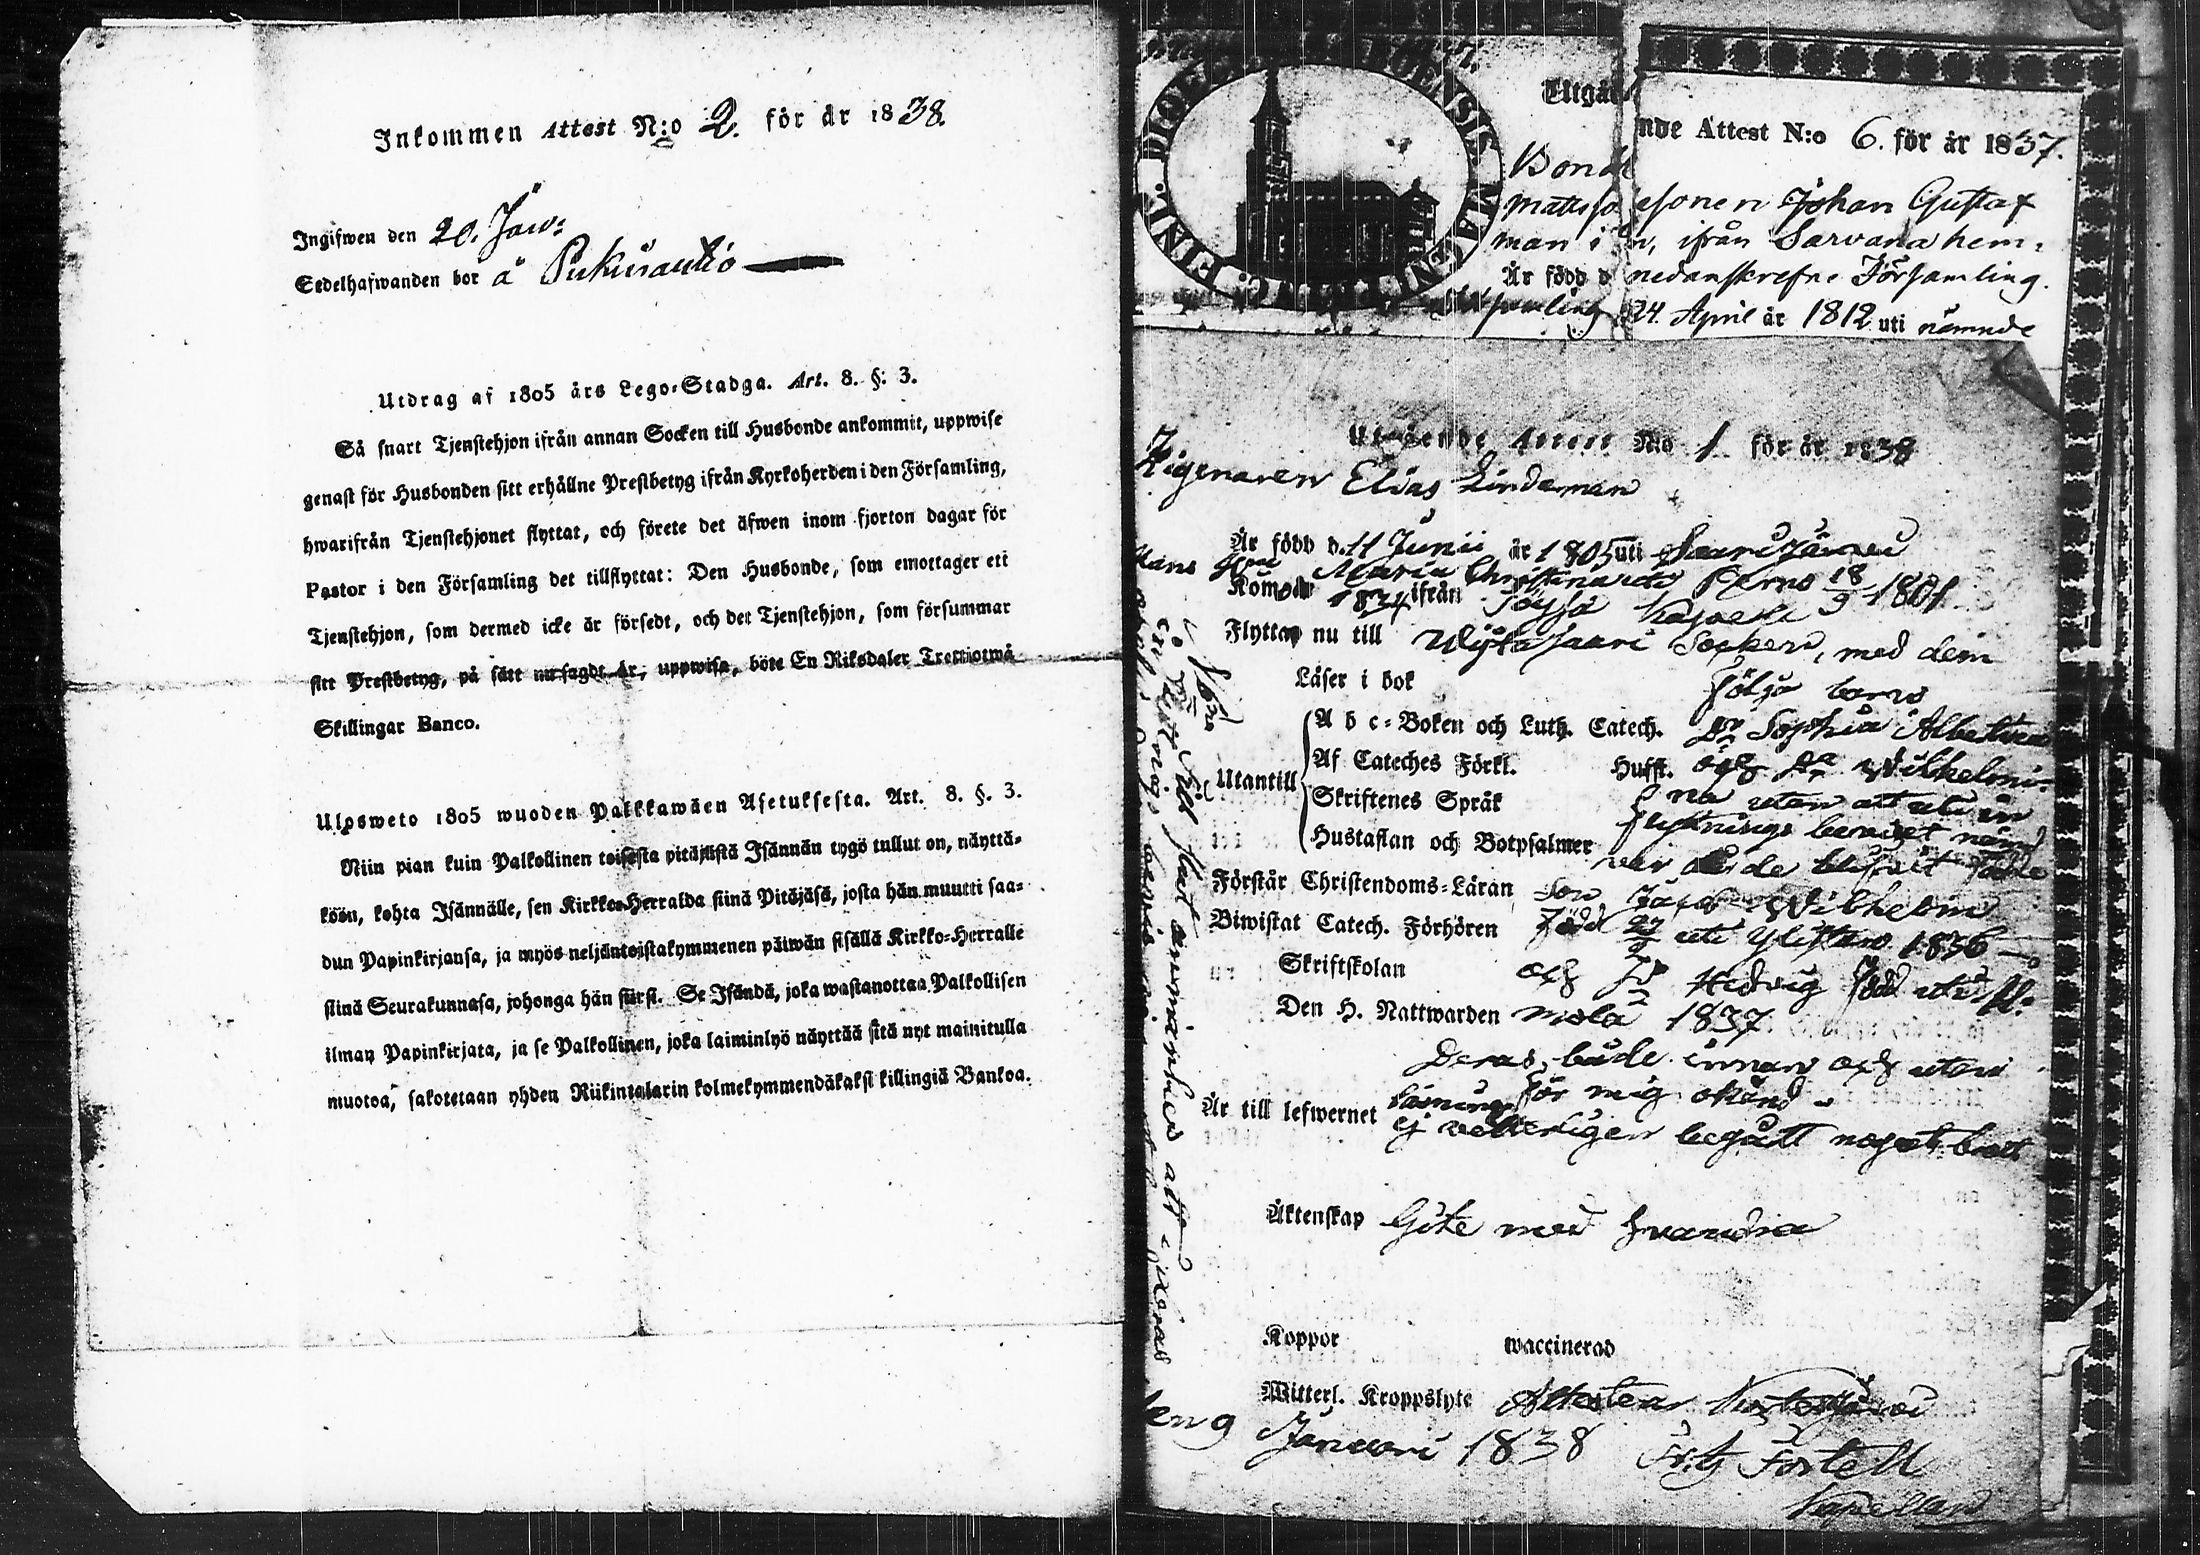 Inkommen Attest N:o 2. för år 1838.
Ingifwen den 20. Janu:
Sedelhafwanden bor å
Utdrag af 1805 års Lego-Stadga. Art. 8. §: 3.
Så snart Tjenstehjon ifrån annan Socken till Husbonde ankommit, uppwise
genast för Husbonden sitt erhållne Prestbetyg ifrån Kyrkoherden i den Församling,
hwarifrån Tjenstehjonet flyttat, och förete det äfwen inom fjorton dagar för
Pastor i den Församling det tillflyttat: Den Husbonde, som emottager ett
Tjenstehjon, som dermed icke är försedt, och det Tjenstehjon, som försummar
sitt Prestbetyg, på sätt nu sagdt är, uppwisa, böte En Riksdaler Trettiotwå
Skillingar Banco.
Ulosweto 1805 wuoden Palkkawäen Asetuksesta. Art. 8. §. 3.
Niin pian kuin Palkollinen toisesta pitäjästä Isännän tygö tullut on, näyttä-
köön, kohta Isännälle, sen Kirkko-Herralda siinä Pitäjäsä, josta hän muutti saa-
dun Papinkirjansa, ja myös neljäntoistakymmenen päiwän sisällä Kirkko-Herralle
siinä Seurakunnasa, johonga hän siirsi. Se Isändä, joka wastanottaa Palkollisen
ilman Papinkirjata, ja se Palkollinen, joka laiminlyö näyttää sitä nyt mainitulla
muotoa, sakotetaan yhden Riikintalarin kolmekymmendäkaksi killingiä Bankoa.
DIOE ABOENSIS MAGNI FENN:
Utgå
Bonde
man i
Är född d
nde Attest N:o 6. för år 1837.
sonen Johan Gustaf
n, ifrån Sarvana hem-
nedanskrefne Församling.
24. April år 1812 uti nämnde
Utgående Attest N:o 1 för år 1838
Zigenaren Elias Lindeman
Är född d. 11 Junii år 1805 uti Saarijärvi
Hans Hu Maria Christina uti Perno 18/9 1801
Kom 1834 ifrån Töysä Kapell
Flyttar nu till Ylistaro Socken, med dem
Läser i bok följa barn
A b c-Boken och Luth. Catech. Dr Sophia Albertina
Utantill
Af Cateches Förkl. Husft. och Dr Wilhelmi-
Skriftenes Språk na utan att uti in
Hustaflan och Botpsalmer flyttnings beviset
Förstår Christendoms-Läran Son Wilhelm
Biwistat Catech. Förhören född uti Ylistaro 1836
Skriftskolan och Dr Hedvig född uti
Den H. Nattwarden mola 1837
Deras, både innan och utan
Är till lefwernet för mig okänd
ej veterligen begått något brott
Äktenskap Gift med hvarandra
Koppor waccinerad
Witterl. Kroppslyte Attesterar Kortesjärvi
den 9 Januari 1838
Kapellan